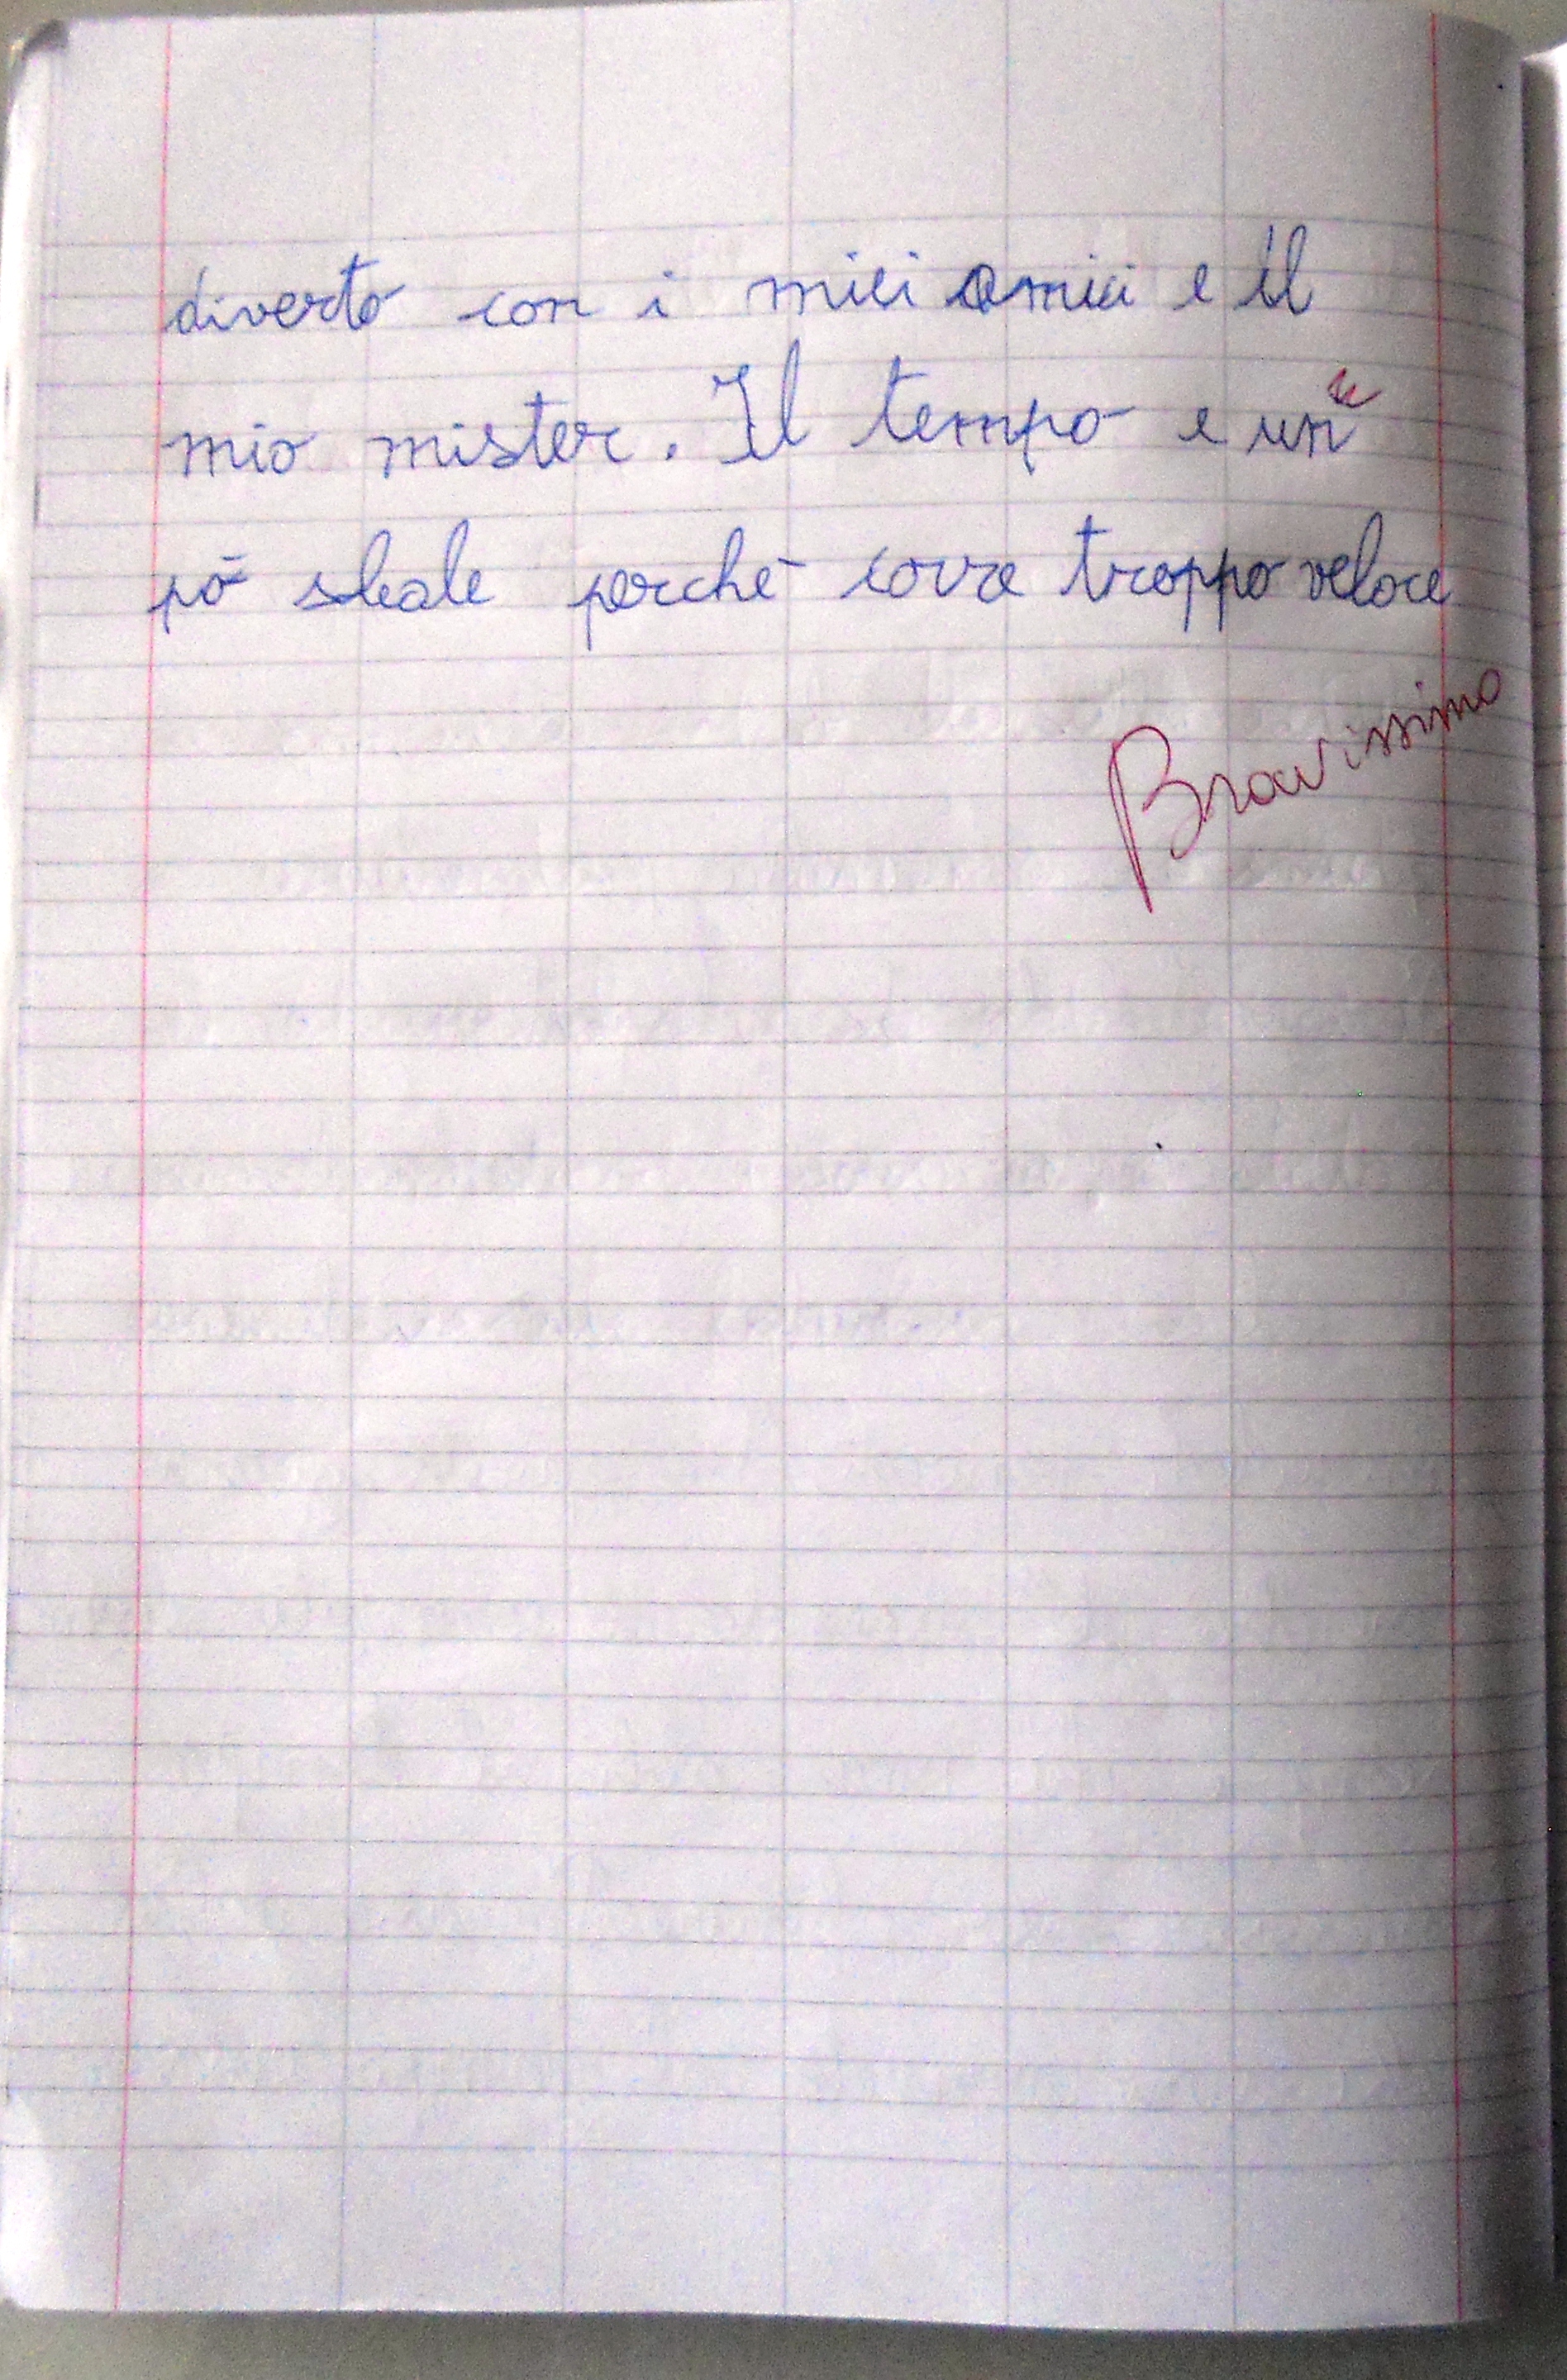 diverto con i miei amici e il
mio mister. Il tempo e un
pó sleale perché corre troppo veloce
Bravissimo